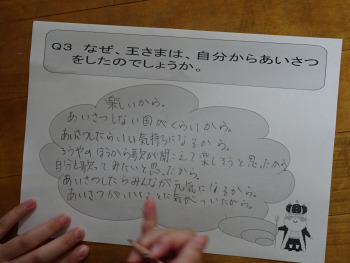 Q3 なぜ、王さまは、自分からあいさつ
をしたのでしょうか。
楽しいから。
あいさつしない国がくらいから。
あいさつしたらいい気持ちになるから。
ろうやのほうから歌が聞こえて楽しそうと思ったから。
自分も歌ってみたいと思ったから。
あいさつしたらみんなが元気になるから。
あいさつがいいことだ気がついたから。